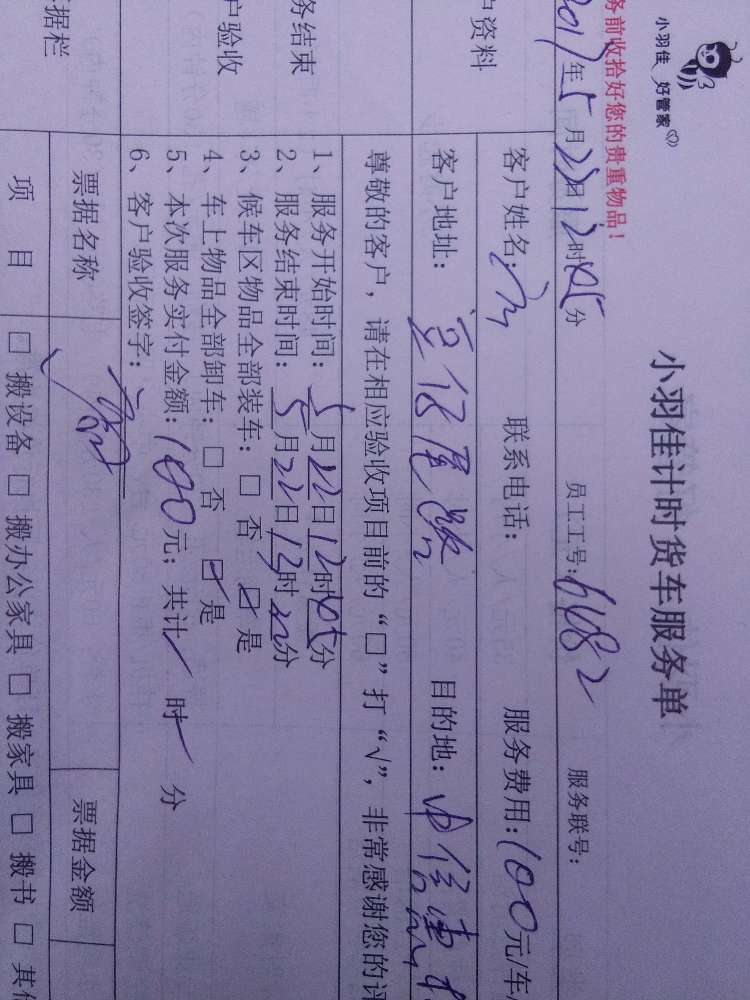 小羽佳 好管家
务前收拾好您的贵重物品！
小羽佳计时货车服务单
2017年5月22日12时05分 员工工号: 服务联号:
户资料
客户姓名: 联系电话: 服务费用:100元/车
客户地址: 目的地:
尊敬的客户，请在相应验收项目前的“□”打“√”，非常感谢您的评
务结束
户验收
1、服务开始时间:5月22日12时05分
2、服务结束时间:5月22日13时 分
3、候车区物品全部装车:□ 否 ☑ 是
4、车上物品全部卸车:□ 否 ☑ 是
5、本次服务实付金额:100元；共计 时 分
6、客户验收签字:
据栏
票据名称 票据金额
项 目 □ 搬设备 □ 搬办公家具 □ 搬家具 □ 搬书 □ 其他